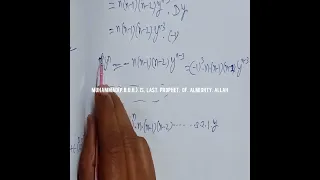 = n(n-1)(n-2) y^{n-3} . Dy
= n(n-1)(n-2) y^{n-3} . (-1)
= - n(n-1)(n-2) y^{n-3} = (-1)^3 n(n-1)(n-2) y^{n-3}
MUHAMMAD
LAST PROPHET OF ALMIGHTY ALLAH
n(n-1)(n-2) ...... 3.2.1. y